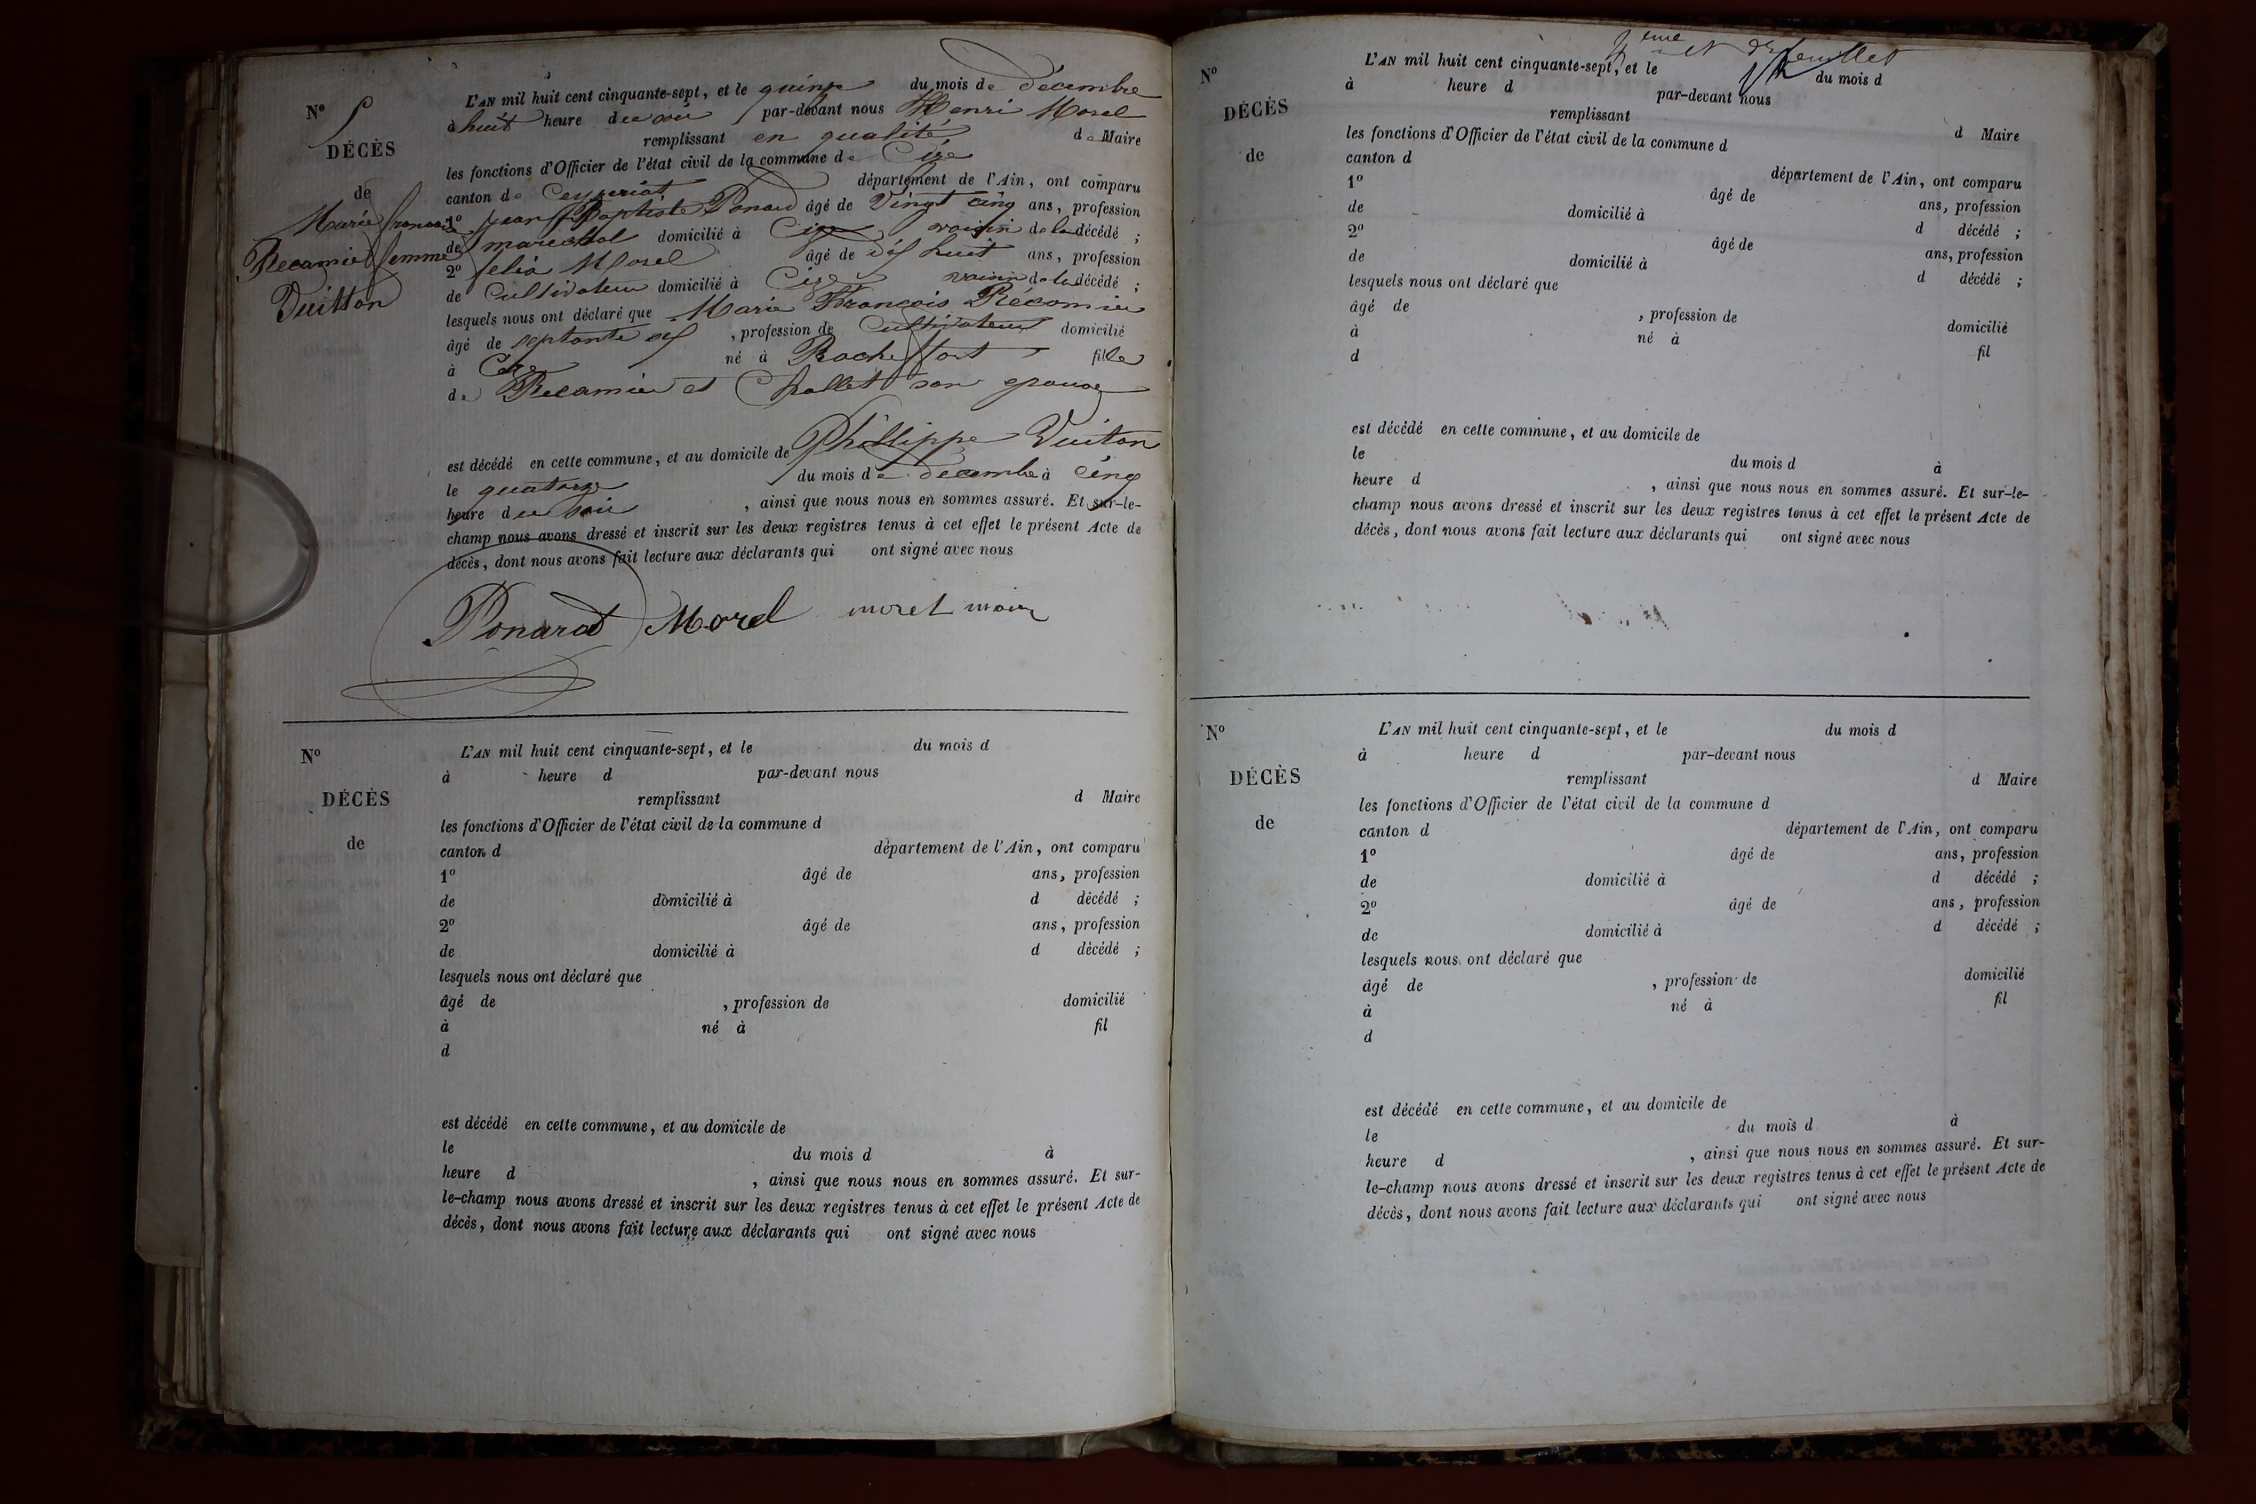 N° 5
DÉCÈS
de
Marie françoise
Recamier femme
Vuitton
L'AN mil huit cent cinquante-sept, et le quinze du mois de décembre
à huit heure du soir par-devant nous Henri Morel
remplissant en qualité de Maire
les fonctions d'Officier de l'état civil de la commune de Cize
canton de Ceyzeriat département de l'Ain, ont comparu
1° jean Baptiste Ponard âgé de vingt cinq ans, profession
de marechal domicilié à Cize voisin de la décédé ;
2° felix Morel âgé de dix huit ans, profession
de Cultivateur domicilié à Cize voisin de la décédé ;
lesquels nous ont déclaré que Marie François Récamier
âgé de septante six , profession de Cultivateur domicilié
à Cize né à Rocheffort fille
de Recamier et Chollet son epouse
est décédé en cette commune, et au domicile de Phillippe Vuiton
le quatorze du mois de decembre à cinq
heure du soir , ainsi que nous nous en sommes assuré. Et sur-le-
champ nous avons dressé et inscrit sur les deux registres tenus à cet effet le présent Acte de
décès, dont nous avons fait lecture aux déclarants qui ont signé avec nous
Ponard Morel morel maire
N°
DÉCÈS
de
L'AN mil huit cent cinquante-sept, et le du mois d
à heure d par-devant nous
remplissant d Maire
les fonctions d'Officier de l'état civil de la commune d
canton d département de l'Ain, ont comparu
1° âgé de ans, profession
de domicilié à d décédé ;
2° âgé de ans, profession
de domicilié à d décédé ;
lesquels nous ont déclaré que
âgé de , profession de domicilié
à né à fil
d
est décédé en cette commune, et au domicile de
le du mois d à
heure d , ainsi que nous nous en sommes assuré. Et sur-
le-champ nous avons dressé et inscrit sur les deux registres tenus à cet effet le présent Acte de
décès, dont nous avons fait lecture aux déclarants qui ont signé avec nous
feuillet
N°
DÉCÈS
de
L'AN mil huit cent cinquante-sept, et le du mois d
à heure d par-devant nous
remplissant d Maire
les fonctions d'Officier de l'état civil de la commune d
canton d département de l'Ain, ont comparu
1° âgé de ans, profession
de domicilié à d décédé ;
2° âgé de ans, profession
de domicilié à d décédé ;
lesquels nous ont déclaré que
âgé de , profession de domicilié
à né à fil
d
est décédé en cette commune, et au domicile de
le du mois d à
heure d , ainsi que nous nous en sommes assuré. Et sur-le-
champ nous avons dressé et inscrit sur les deux registres tenus à cet effet le présent Acte de
décès, dont nous avons fait lecture aux déclarants qui ont signé avec nous
N°
DÉCÈS
de
L'AN mil huit cent cinquante-sept, et le du mois d
à heure d par-devant nous
remplissant d Maire
les fonctions d'Officier de l'état civil de la commune d
canton d département de l'Ain, ont comparu
1° âgé de ans, profession
de domicilié à d décédé ;
2° âgé de ans, profession
de domicilié à d décédé ;
lesquels nous ont déclaré que
âgé de , profession de domicilié
à né à fil
d
est décédé en cette commune, et au domicile de
le du mois d à
heure d , ainsi que nous nous en sommes assuré. Et sur-
le-champ nous avons dressé et inscrit sur les deux registres tenus à cet effet le présent Acte de
décès, dont nous avons fait lecture aux déclarants qui ont signé avec nous